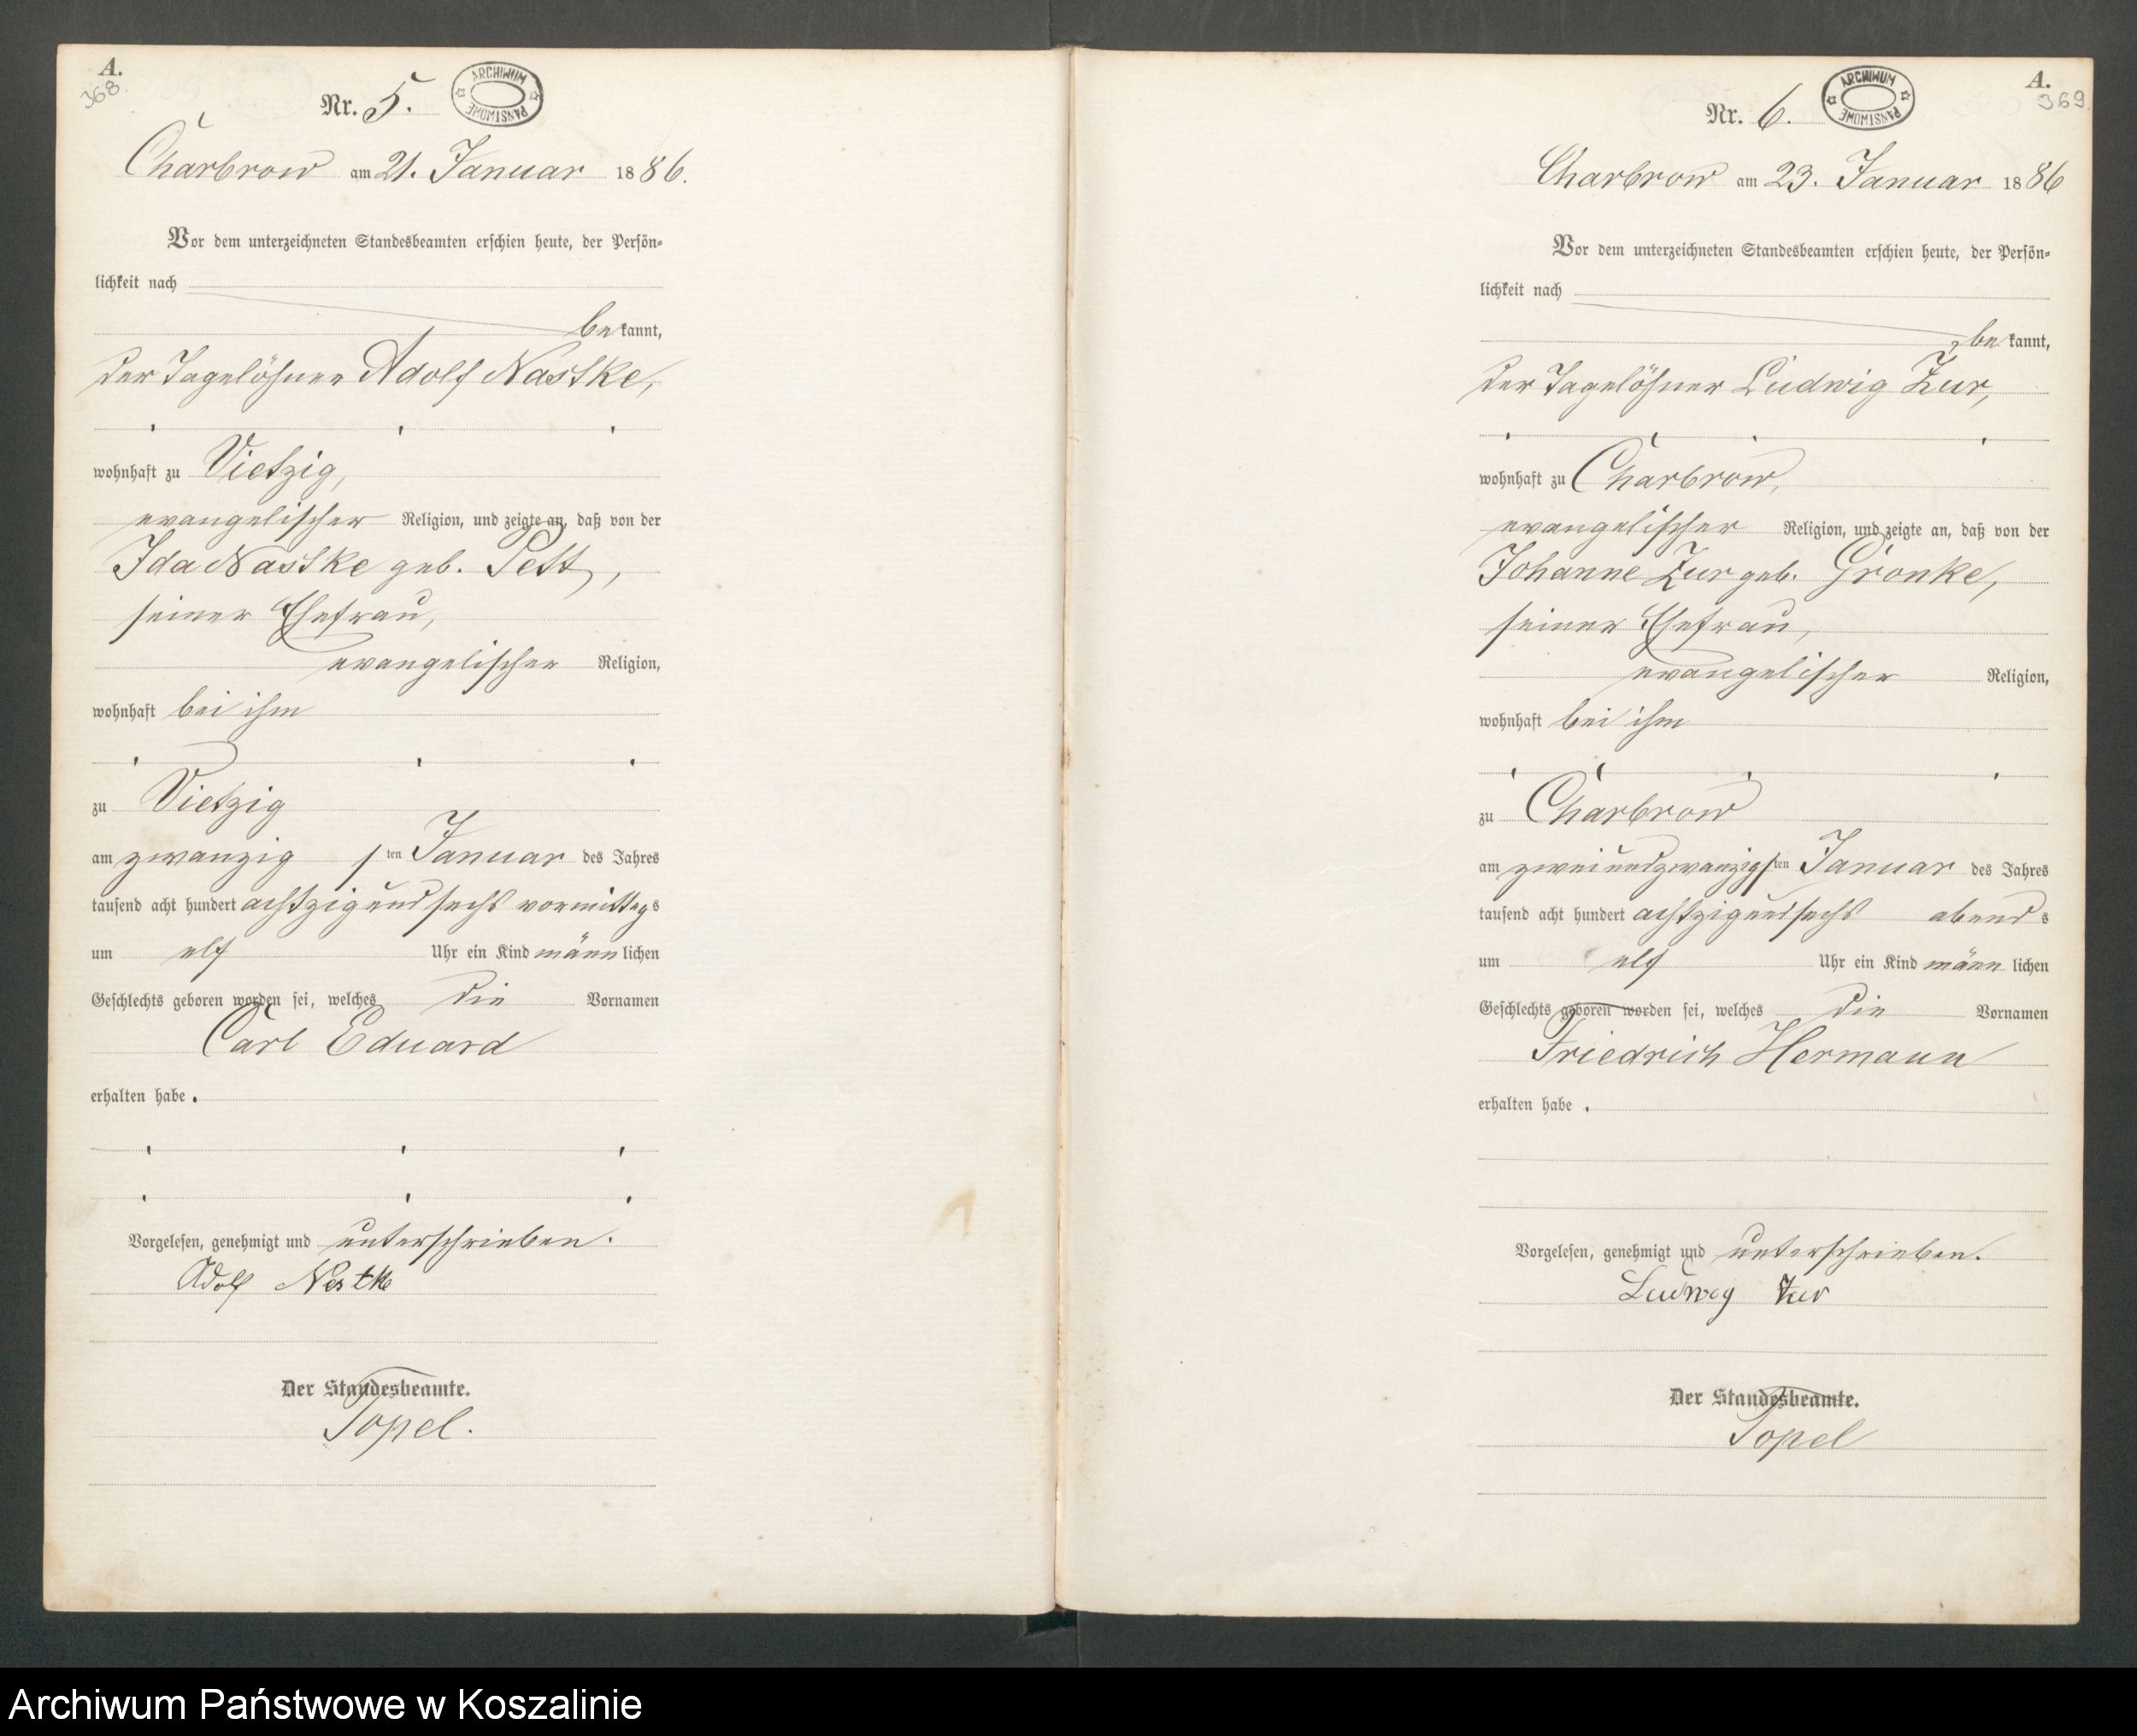 A.
368.
Nr. 5.
ARCHIWUM PAŃSTWOWE
Charbrow am 21. Januar 1886.
Vor dem unterzeichneten Standesbeamten erschien heute, der Persön-
lichkeit nach
bekannt,
der Tagelöhner Adolf Nastke,
wohnhaft zu Vietzig,
evangelischer Religion, und zeigte an, daß von der
Ida Nastke geb. Pett,
seiner Ehefrau,
evangelischer Religion,
wohnhaft bei ihm
zu Vietzig
am zwanzigsten Januar des Jahres
tausend acht hundert achtzig und sechs vormittags
um elf Uhr ein Kind männlichen
Geschlechts geboren worden sei, welches die Vornamen
Carl Eduard
erhalten habe.
Vorgelesen, genehmigt und unterschrieben.
Adolf Nestke
Der Standesbeamte.
Topel.
A.
369
Nr. 6.
ARCHIWUM PAŃSTWOWE
Charbrow am 23. Januar 1886
Vor dem unterzeichneten Standesbeamten erschien heute, der Persön-
lichkeit nach
bekannt,
der Tagelöhner Ludwig Zur,
wohnhaft zu Charbrow,
evangelischer Religion, und zeigte an, daß von der
Johanne Zur geb. Gronke,
seiner Ehefrau,
evangelischer Religion,
wohnhaft bei ihm
zu Charbrow
am zweiundzwanzigsten Januar des Jahres
tausend acht hundert achtzig und sechs abends
um elf Uhr ein Kind männlichen
Geschlechts geboren worden sei, welches die Vornamen
Friedrich Hermann
erhalten habe.
Vorgelesen, genehmigt und unterschrieben.
Ludweg Zur
Der Standesbeamte.
Topel
Archiwum Państwowe w Koszalinie